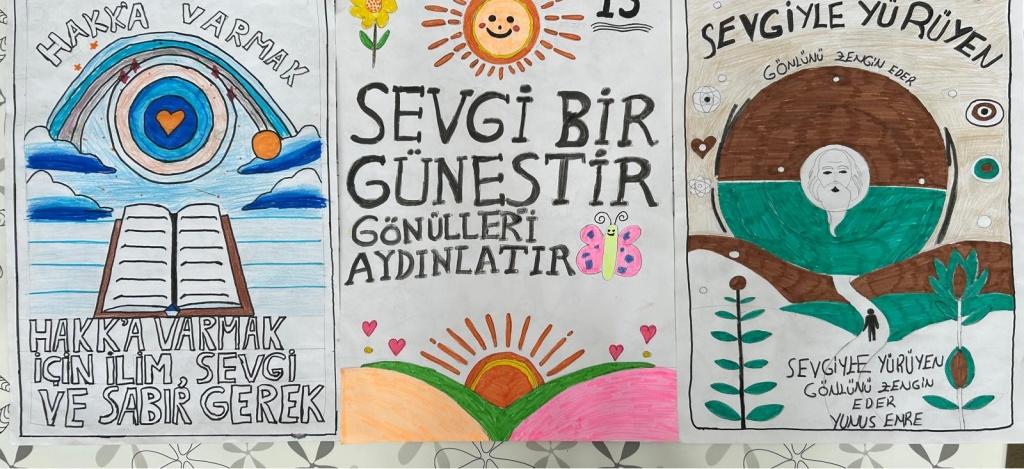 HAKK'A VARMAK
HAKK'A VARMAK
İÇİN İLİM, SEVGİ
VE SABIR GEREK
SEVGİ BİR
GÜNEŞTİR
GÖNÜLLERİ
AYDINLATIR
SEVGİYLE YÜRÜYEN
GÖNLÜNÜ ZENGİN EDER
SEVGİYLE YÜRÜYEN
GÖNLÜNÜ ZENGİN
EDER
YUNUS EMRE